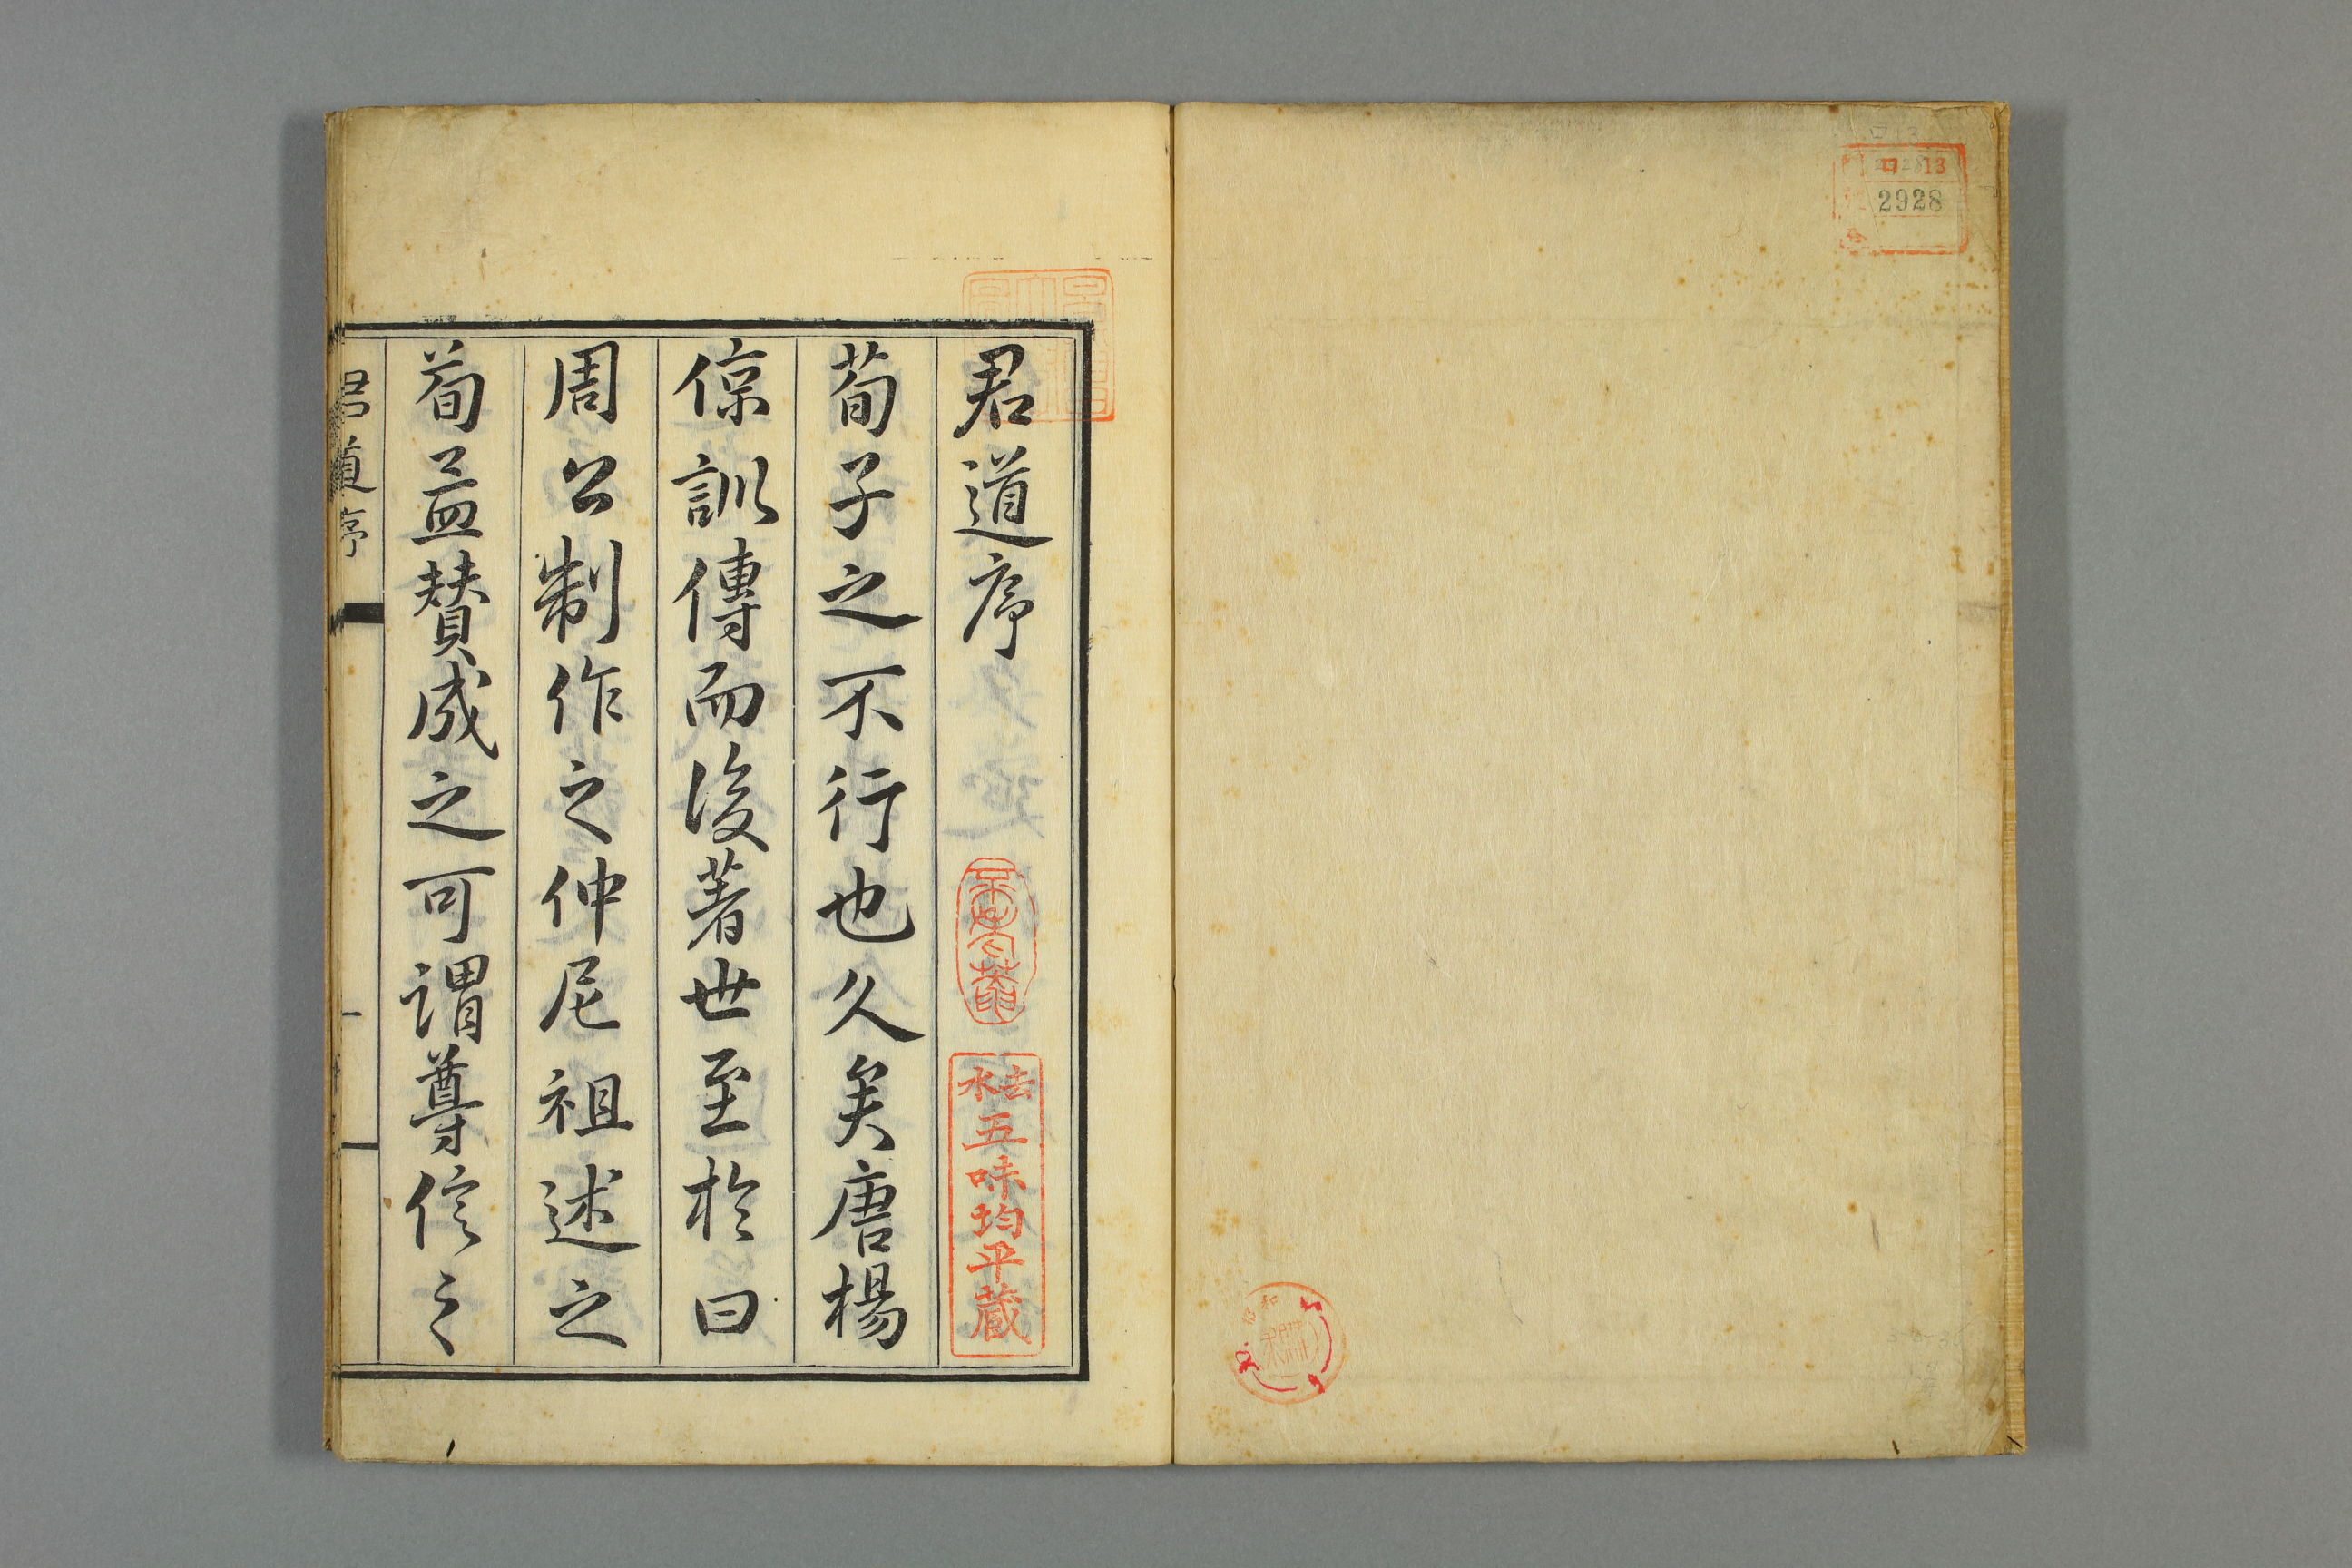 ロ 13
2928
君道序
荀子之不行也久矣唐楊
倞訓傳而後著世至於曰
周公制作之仲尼祖述之
荀益賛成之可謂尊信之
君道序
一
去水
五味均平蔵